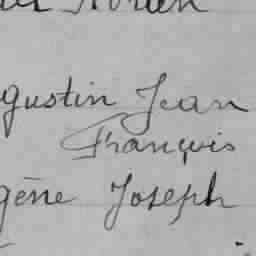 gustin Jean
François
gène Joseph